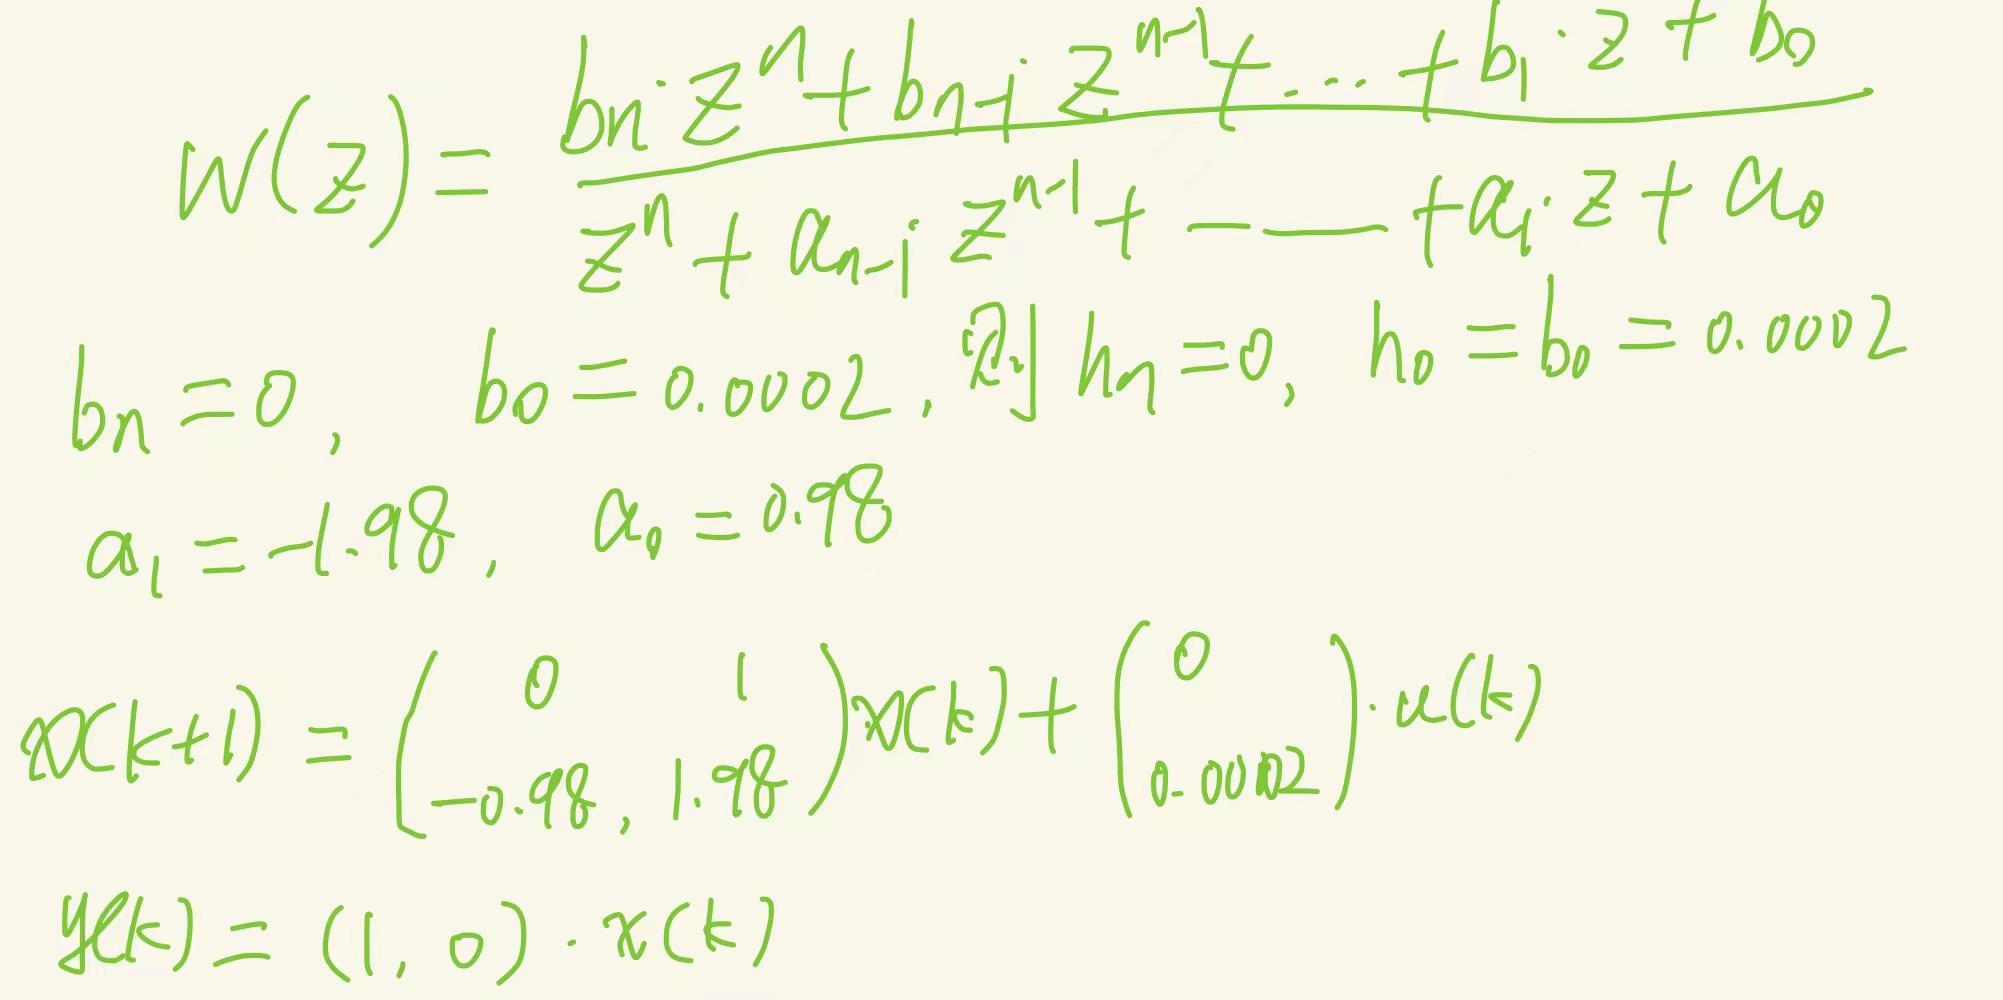 W(z) = (bn·z^n + bn-1·z^(n-1) + ... + b1·z + b0) / (z^n + an-1 z^(n-1) + —— + a1·z + a0)
bn = 0, b0 = 0.0002, 则 hn = 0, h0 = b0 = 0.0002
a1 = -1.98, a0 = 0.98
x(k+1) = (0 1; -0.98, 1.98) x(k) + (0; 0.0002)·u(k)
y(k) = (1, 0)·x(k)